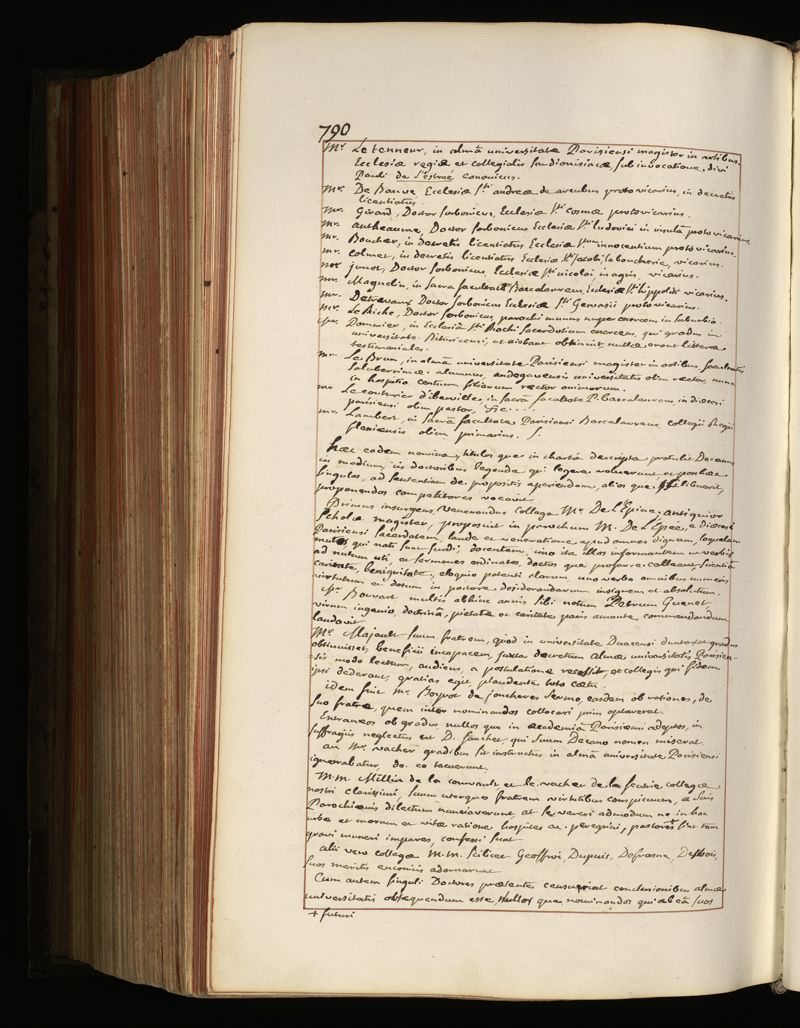 790
Mr. Le tenneur, in almâ universitate Parisiensi magister in artibus,
Ecclesiæ regiæ et collegialis sandionisiacæ, sub invocatione, divi
Pauli de canonicus.
Mr. De Bauve Ecclesiæ Sti andreæ de arcubus protovicarius, in decretis
licentiatus.
Mr. Girard, Doctor sorbonicus, Ecclesiæ Sti cosmæ protovicarius.
Mr. antheaume, Doctor sorbonicus Ecclesiæ Sti ludovici in insulâ protovicarius.
Mr. Boucher, in decretis licentiatus Ecclesiæ innocentium protovicarius.
Mr. colmet, in decretis licentiatus Ecclesiæ Sti Jacobi laboucherie, vicarius.
junot, Doctor sorbonicus, Ecclesiæ Sti nicolai in agris, vicarius.
Mr. Magnelin, in sacra facultate Baccalaureus, Ecclesiæ Sti hippoliti vicarius.
Mr. Detravaux Doctor sorbonicus Ecclesiæ Sti Gervasii protovicarius.
Mr. Le Riche, Doctor sorbonicus, parochi munus nuper exercens in suburbio.
Mr. Dommier, in Ecclesiâ Sti Rochi sacerdotium exercens, qui gradus in
universitate Bituricensi, ut aiebant obtinuit, nullæ erant litteræ
testimoniales.
Mr. Le Brun, in almâ universitate Parisiensi magister in artibus, facultatis
saluberrimæ alumnus, andegavensis universitatis olim rector, nunc
in hospitio centum filiarum rector animarum.
Mr. Le couturier d'iberville, in sacrâ facultate P. Baccalaureus, in diœcesi
parisiensi olim pastor, &c...
Mr. Lambert, in sacrâ facultate Parisiensi Baccalaureus, collegii Regii
flexiensis olim primarius. /.
Hæc eadem nomina, titulos que in chartâ descripta protulit Decanus
in medium, iis doctoribus legenda qui legere voluerunt et posthac
singulos, ad sententiam de propositis aperiendam, alios que, si libuerit,
proponendos competitores vocavit.
Primus insurgens, venerandus collega Mr. De L'Epine, antiquior
scholæ magister, proposuit in parochum M. De L'Epée, e Diœcesi
Parisiensi sacerdotem, laude et veneratione apud omnes dignum, loquelam
mutos, qui nati sunt surdi, docentem, imo ita illos informantem ut verbis
ad nutum uti, et sermones ordinatos, doctos que proferre calleant, scientiâ
caritate, benignitate, eloquio potenti clarum, uno verbo omnibus numeris
virtutum et dotum in pastore desiderandarum insignem et absolutum.
Mr. Bouvart multis abhinc annis sibi notum Petrum Guenet,
virum ingenio, doctrinâ, pietate et caritate pari amante commendandum
laudavit.
Mr. Majault suum fratrem, quod in universitate Duacensi duntaxat gradus
obtinuisset, beneficii incapacem, juxta decretum almæ universitatis Parisien-
-sis modo lectum, audiens, a postulatione recessit, et collegis qui fidem
ipsi dederant, gratias egit, plaudente toto cœtu.
idem fuit Mr. Boyrot de joncheres sermo, easdem ob rationes, de
suo fratre, quem inter nominandos collocari prius optaverat.
Extraneos ob gradus, nullos que in academiâ Parisiensi adeptos, in
suffragiis neglectus est D. Fanchet qui suum Decano nomen miserat.
an Mr. vacher gradibus sit instructus in almâ universitate Parisiensi
ignorabatur, de eo tacuerunt.
M.m. Millin de la courvault et le vacher de la feutrie collegæ
nostri clarissimi suum uterque fratrem virtutibus conspicuum, a suis
Parochianis dilectum nunciaverunt, at se vereri admodum ne in hac
urbe et morum et vitæ ratione hospites ac peregrini, pastores sint tam
gravi muneri impares, confessi sunt
alii vero collegæ M.M. scilicet Geoffroi, Dupuis, Defrasne, Deslois,
suos meritis encomiis adornarunt
Cum autem singuli Doctores præsentes censuerint conclusionibus almæ
universitatis obsequendum esse, nullos que nominandos qui ab eâ suos
+ futuri